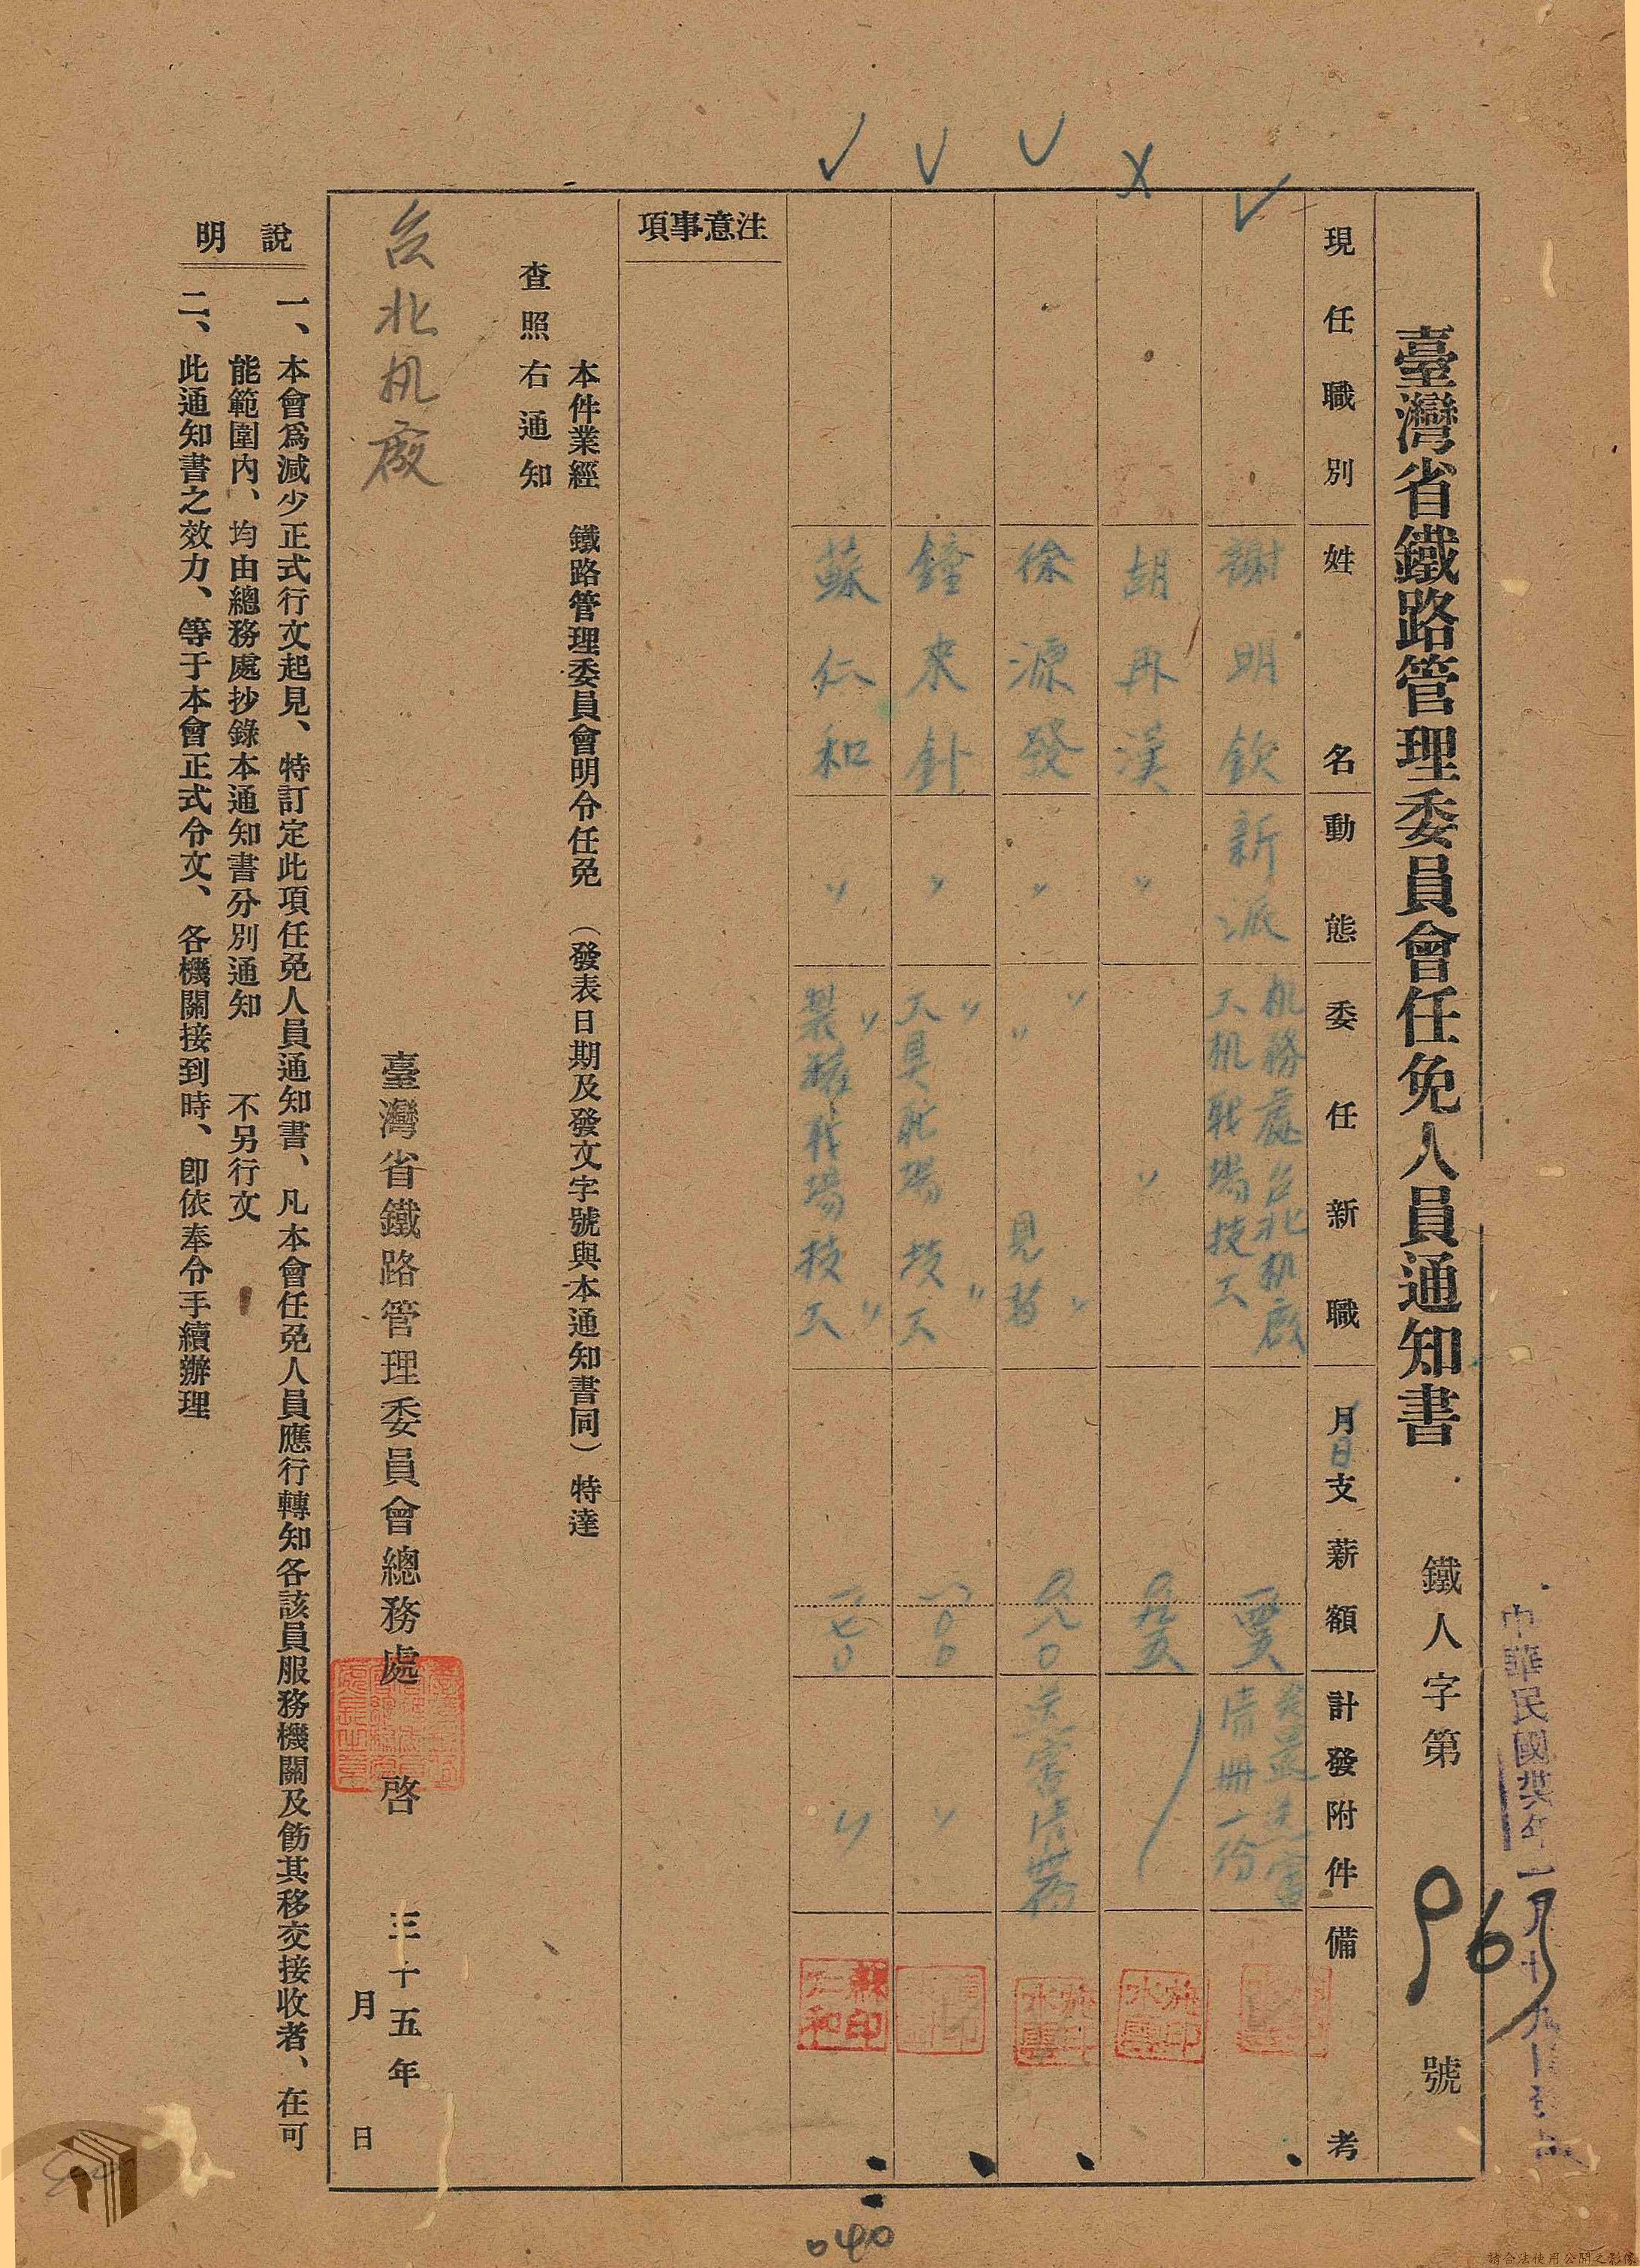 臺灣省鐵路管理委員會任免人員通知書
鐵人字第 965 號
現任職別 姓名 動態 委任新職 月日支薪額 計發附件 備考
謝明欽 新派 机務處台北机廠
工机職場技工
清冊一份
胡再漢 〃 〃
徐源發 〃 〃 〃 見習 〃
鐘來針 〃 〃 工具職場技工 〃 〃
蘇仁和 〃 〃 製罐職場技工 〃 〃
蘇印仁和
注意事項
本件業經 鐵路管理委員會明令任免(發表日期及發文字號與本通知書同)特達
查照右通知
台北机廠
臺灣省鐵路管理委員會總務處 啓 三十五年 月 日
說明
一、本會爲減少正式行文起見、特訂定此項任免人員通知書、凡本會任免人員應行轉知各該員服務機關及飭其移交接收者、在可
能範圍内、均由總務處抄錄本通知書分別通知 不另行文
二、此通知書之效力、等于本會正式令文、各機關接到時、卽依奉令手續辦理
040
請合法使用公開之影像